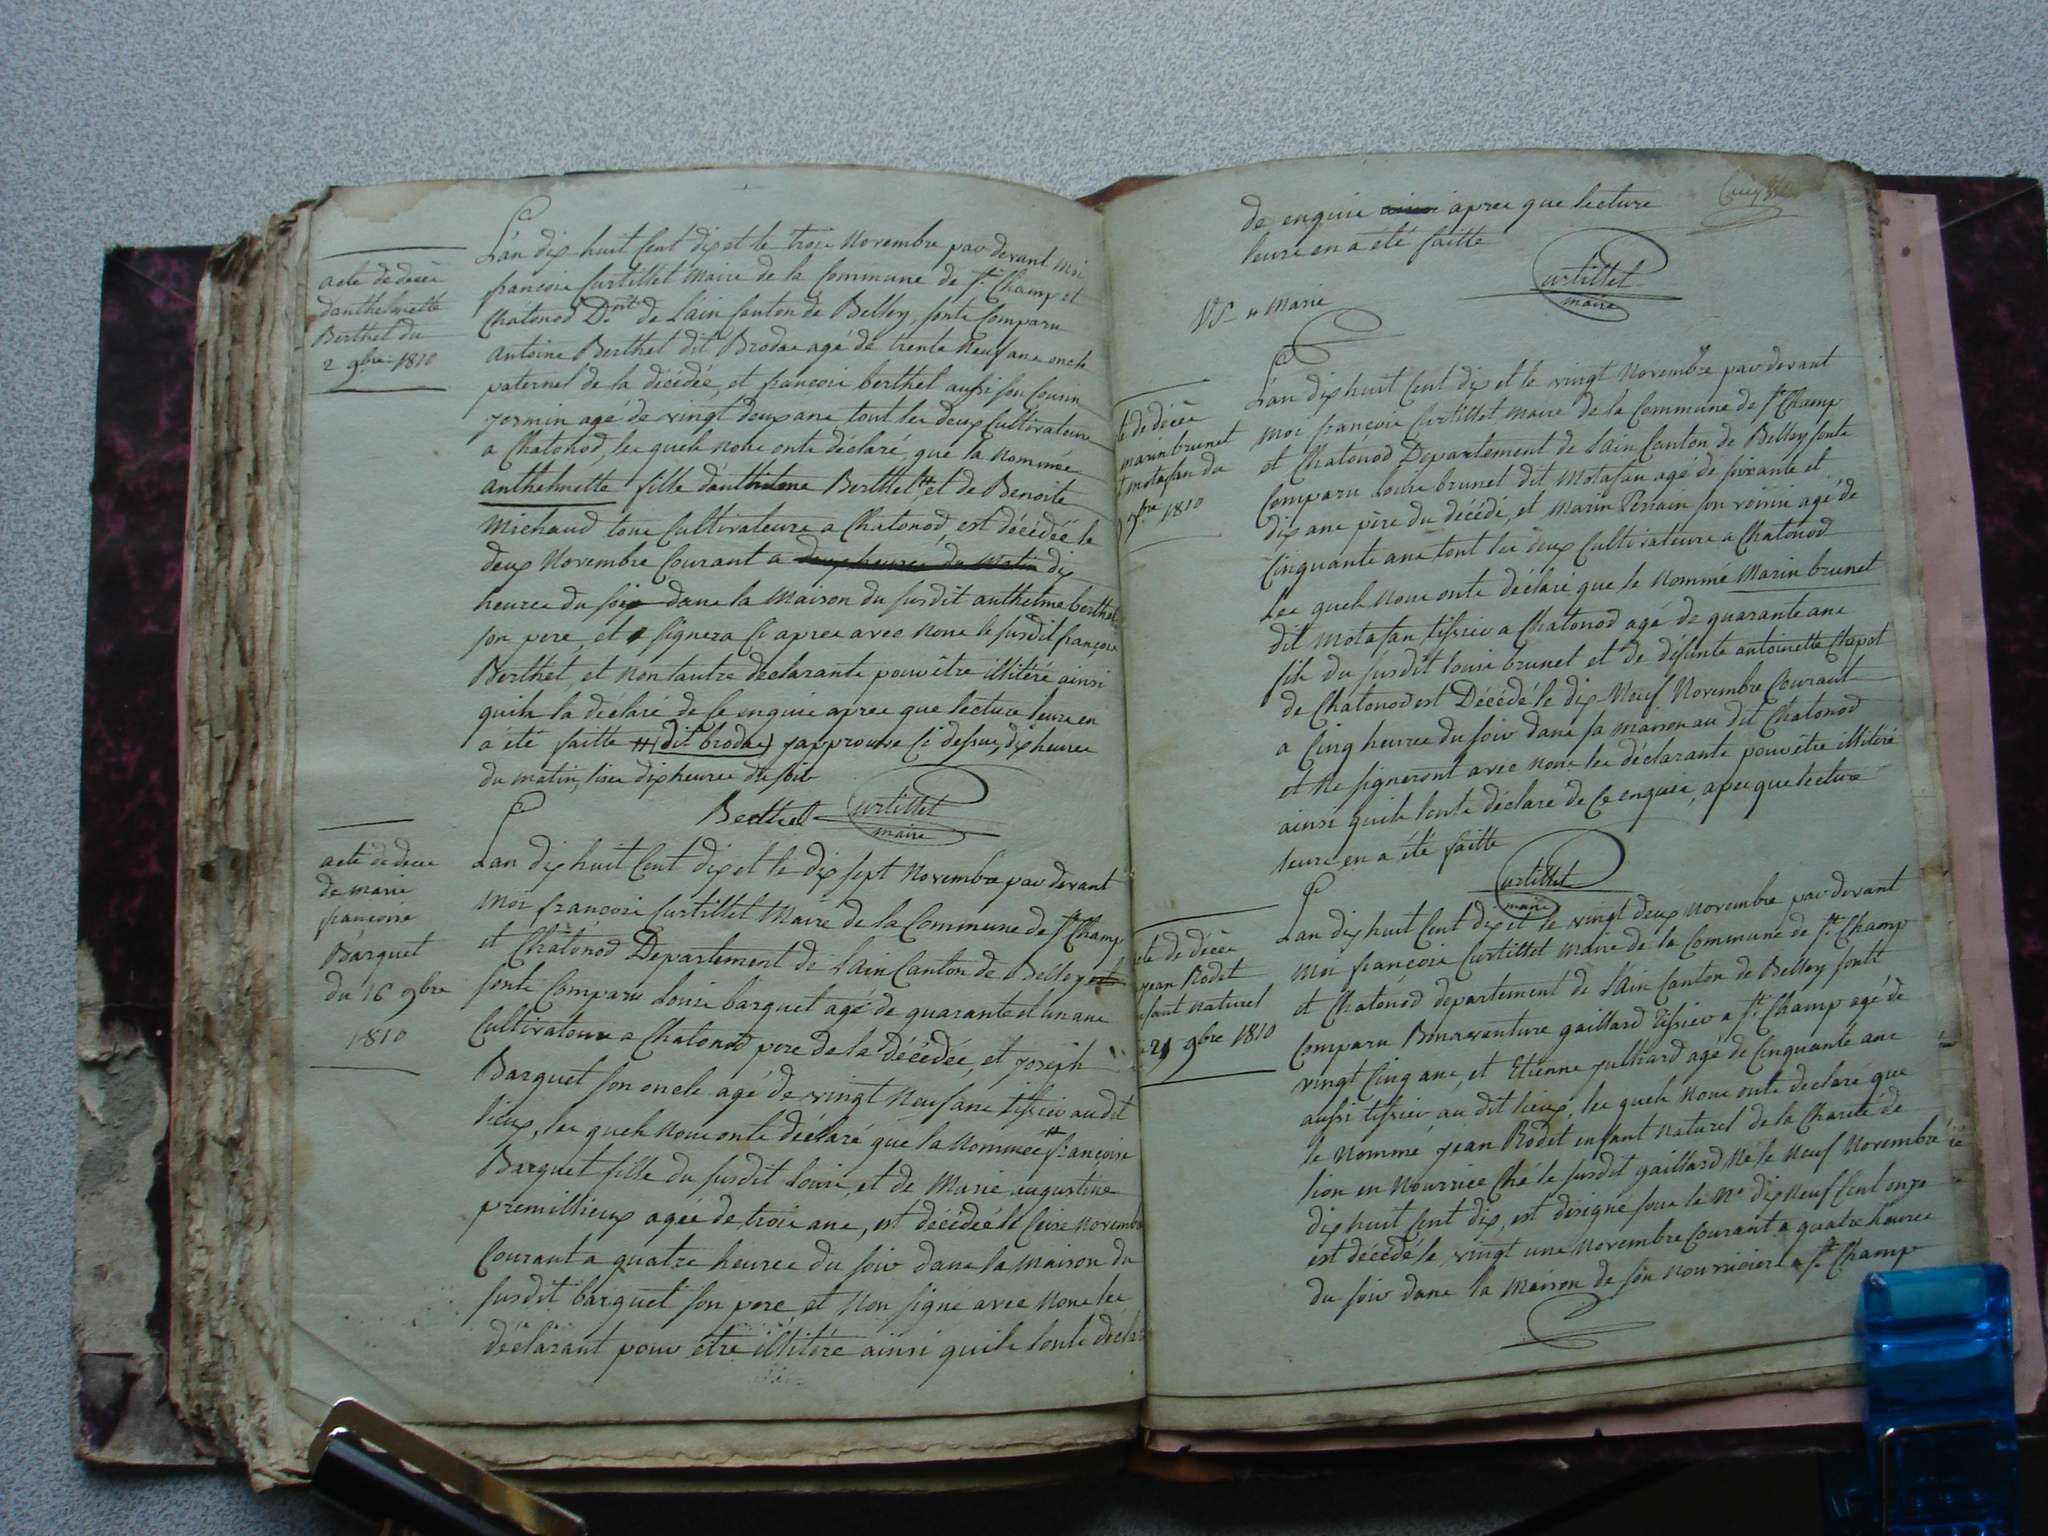 acte de decée
d'anthelmette
Berthet du
2 9bre 1810
L'an dix huit Cent dix et le trois Novembre par devant Moi
françois Curtillet Maire de la Commune de St. Champ et
Chatonod D.ment de L'ain Canton de Belley, sonts Comparu
antoine Berthet dit Brodas agé de trente Neuf ans oncle
paternel de la décédée, et françois berthet aussi son Cousin
germin agé de vingt deux ans tout les deux Cultivateurs
a Chatonod, les quels nous onts déclaré, que la Nommée
anthelmette fille d'anthelme Berthet # et de Benoite
Michaud tous Cultivateurs a Chatonod, est décédéé le
deux Novembre Courant a deux heures du Matin dix
heures du soir dans la Maison du susdit anthelme berthet
son pere, et signera Ci apres avec Nous le susdit françois
Berthet, et Non lautre declarants pour être illitéré ainsi
quils la déclaré de Ce enquis apres que lecture leurs en
a été faitte #(dit brodas) japprouve Ci dessus, dix heures
du matin, lisez dix heures du soir
Berthet Curtillet
maire
acte de deces
de marie
françoise
Barquet
du 16 9bre
1810
Lan dix huit Cent dix et le dix sept Novembre par devant
Moi françois Curtillet Maire de la Commune de St Champ
et Chatonod Departement de L'ain Canton de Belley
sonts Comparus Louis barquet agé de quarante et un ans
Cultivateurs a Chatonod pere de la Décédée, et joseph
Barquet son oncle agé de vingt Neuf ans tissier au dit
lieux, les quels Nous onts déclaré que la Nommée # françoise
Barquet fille du susdit Louis, et de Marie augustine
premillieux agée de trois ans, est décédéé le seize Novembre
Courant a quatre heures du soir dans la Maison du
susdit barquet son pere et Non signé avec Nous les
déclarant pour être illitére ainsi quils lonts décla
de enquis apres que lecture
leurs en a été faitte
Curtillet
maire
# Marie
te de décès
marin brunet
t motasan du
9bre 1810
L'an dix huit Cent dix et le vingt Novembre par devant
Moi françois Curtillet Maire de la Commune de St Champ
et Chatonod Departement de Lain Canton de Belley sonts
Comparu Louis brunet dit Motasan agé de soixante et
dix ans père du décédé, et Marin Perrain son voisin agé de
Cinquante ans tout les deux Cultivateurs a Chatonod
Les quels Nous onts déclaré que le Nommé Marin brunet
dit Motasan tissier a Chatonod agé de quarante ans
fils du susdit louis brunet et de défunte antoinette Chapot
de Chatonod est Décédé le dix Neuf Novembre Courant
a Cinq heures du soir dans sa maison au dit Chatonod
et Ne signeront avec Nous les déclarants pour être illitéré
ainsi quils lonts déclare de Ce enquis, apres que lecture
leurs en a été faitte
Curtillet
maire
cte de décès
jean Rodet
nfant naturel
21 9bre 1810
Lan dix huit Cent dix et le vingt deux Novembre par devant
Moi françois Curtillet Maire de la Commune de St. Champ
et Chatonod departement de L'Ain Canton de Belley sonts
Comparu Bonaventure gaillard tissier a St Champ agé de
vingt Cinq ans, et Etienne julliard agé de Cinquante ans
aussi tissier au dit lieux, les quels Nous onts declaré que
le Nommé jean Rodet enfant Naturel de la Charité de
lion en Nourrice Ché le susdit gaillard, Né le Neuf Novembre
dix huit Cent dix, est désigné sous le No. dix Neuf Cent onze
est décédé le vingt une Novembre Courant a quatre heures
du soir dans la Maison de son nourricier a St Champ